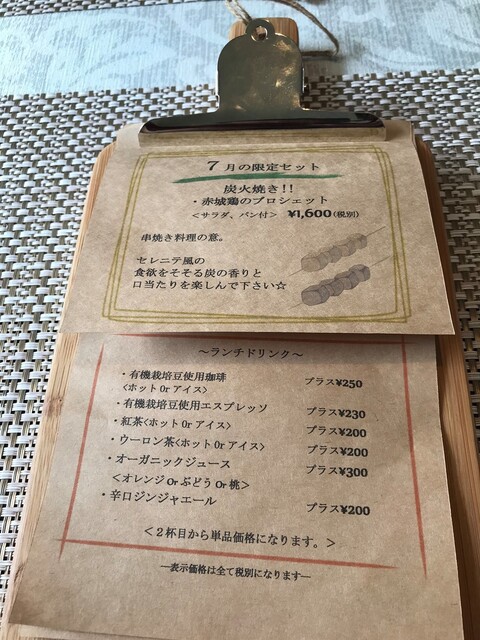 7月の限定セット
炭火焼き!!
・赤城鶏のブロシェット
<サラダ、パン付> ¥1,600(税別)
串焼き料理の意。
セレニテ風の
食欲をそそる炭の香りと
口当たりを楽しんで下さい☆
～ランチドリンク～
・有機栽培豆使用珈琲 プラス¥250
<ホット Or アイス>
・有機栽培豆使用エスプレッソ プラス¥230
・紅茶<ホット Or アイス> プラス¥200
・ウーロン茶<ホット Or アイス> プラス¥200
・オーガニックジュース プラス¥300
<オレンジ Or ぶどう Or 桃>
・辛口ジンジャエール プラス¥200
<2杯目から単品価格になります。>
―表示価格は全て税別になります―